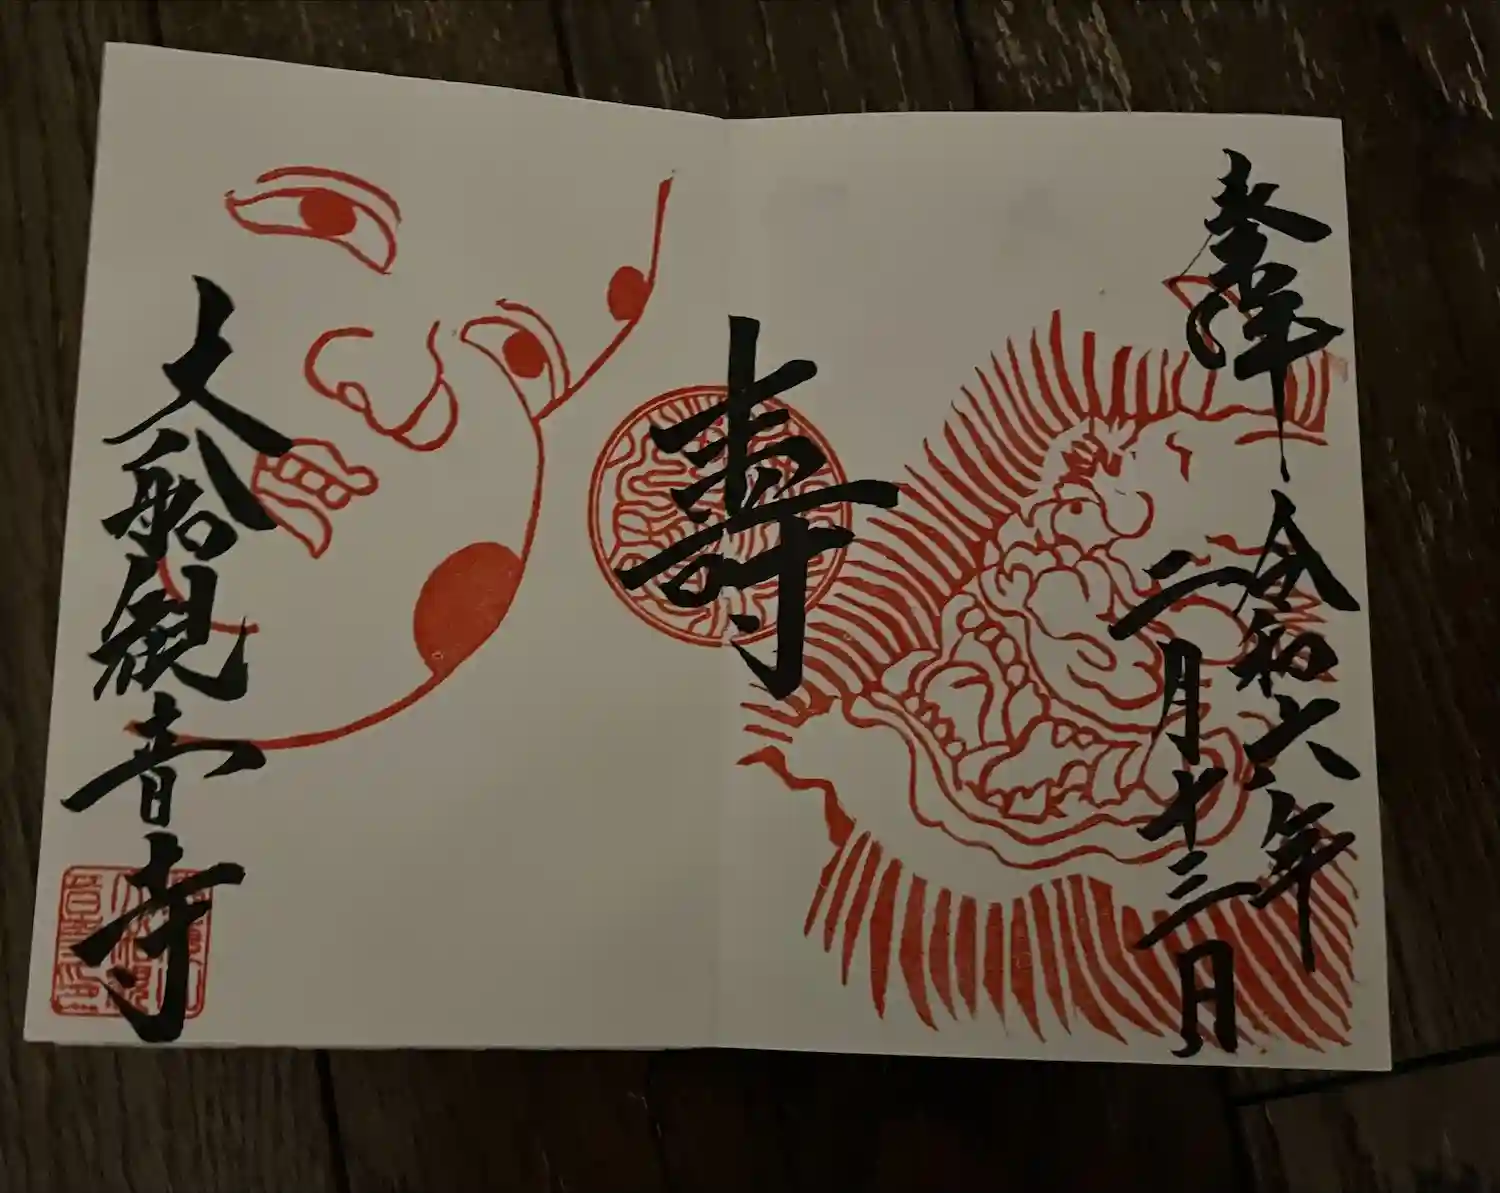 奉拝
令和六年
二月十三日
寿
大船観音寺